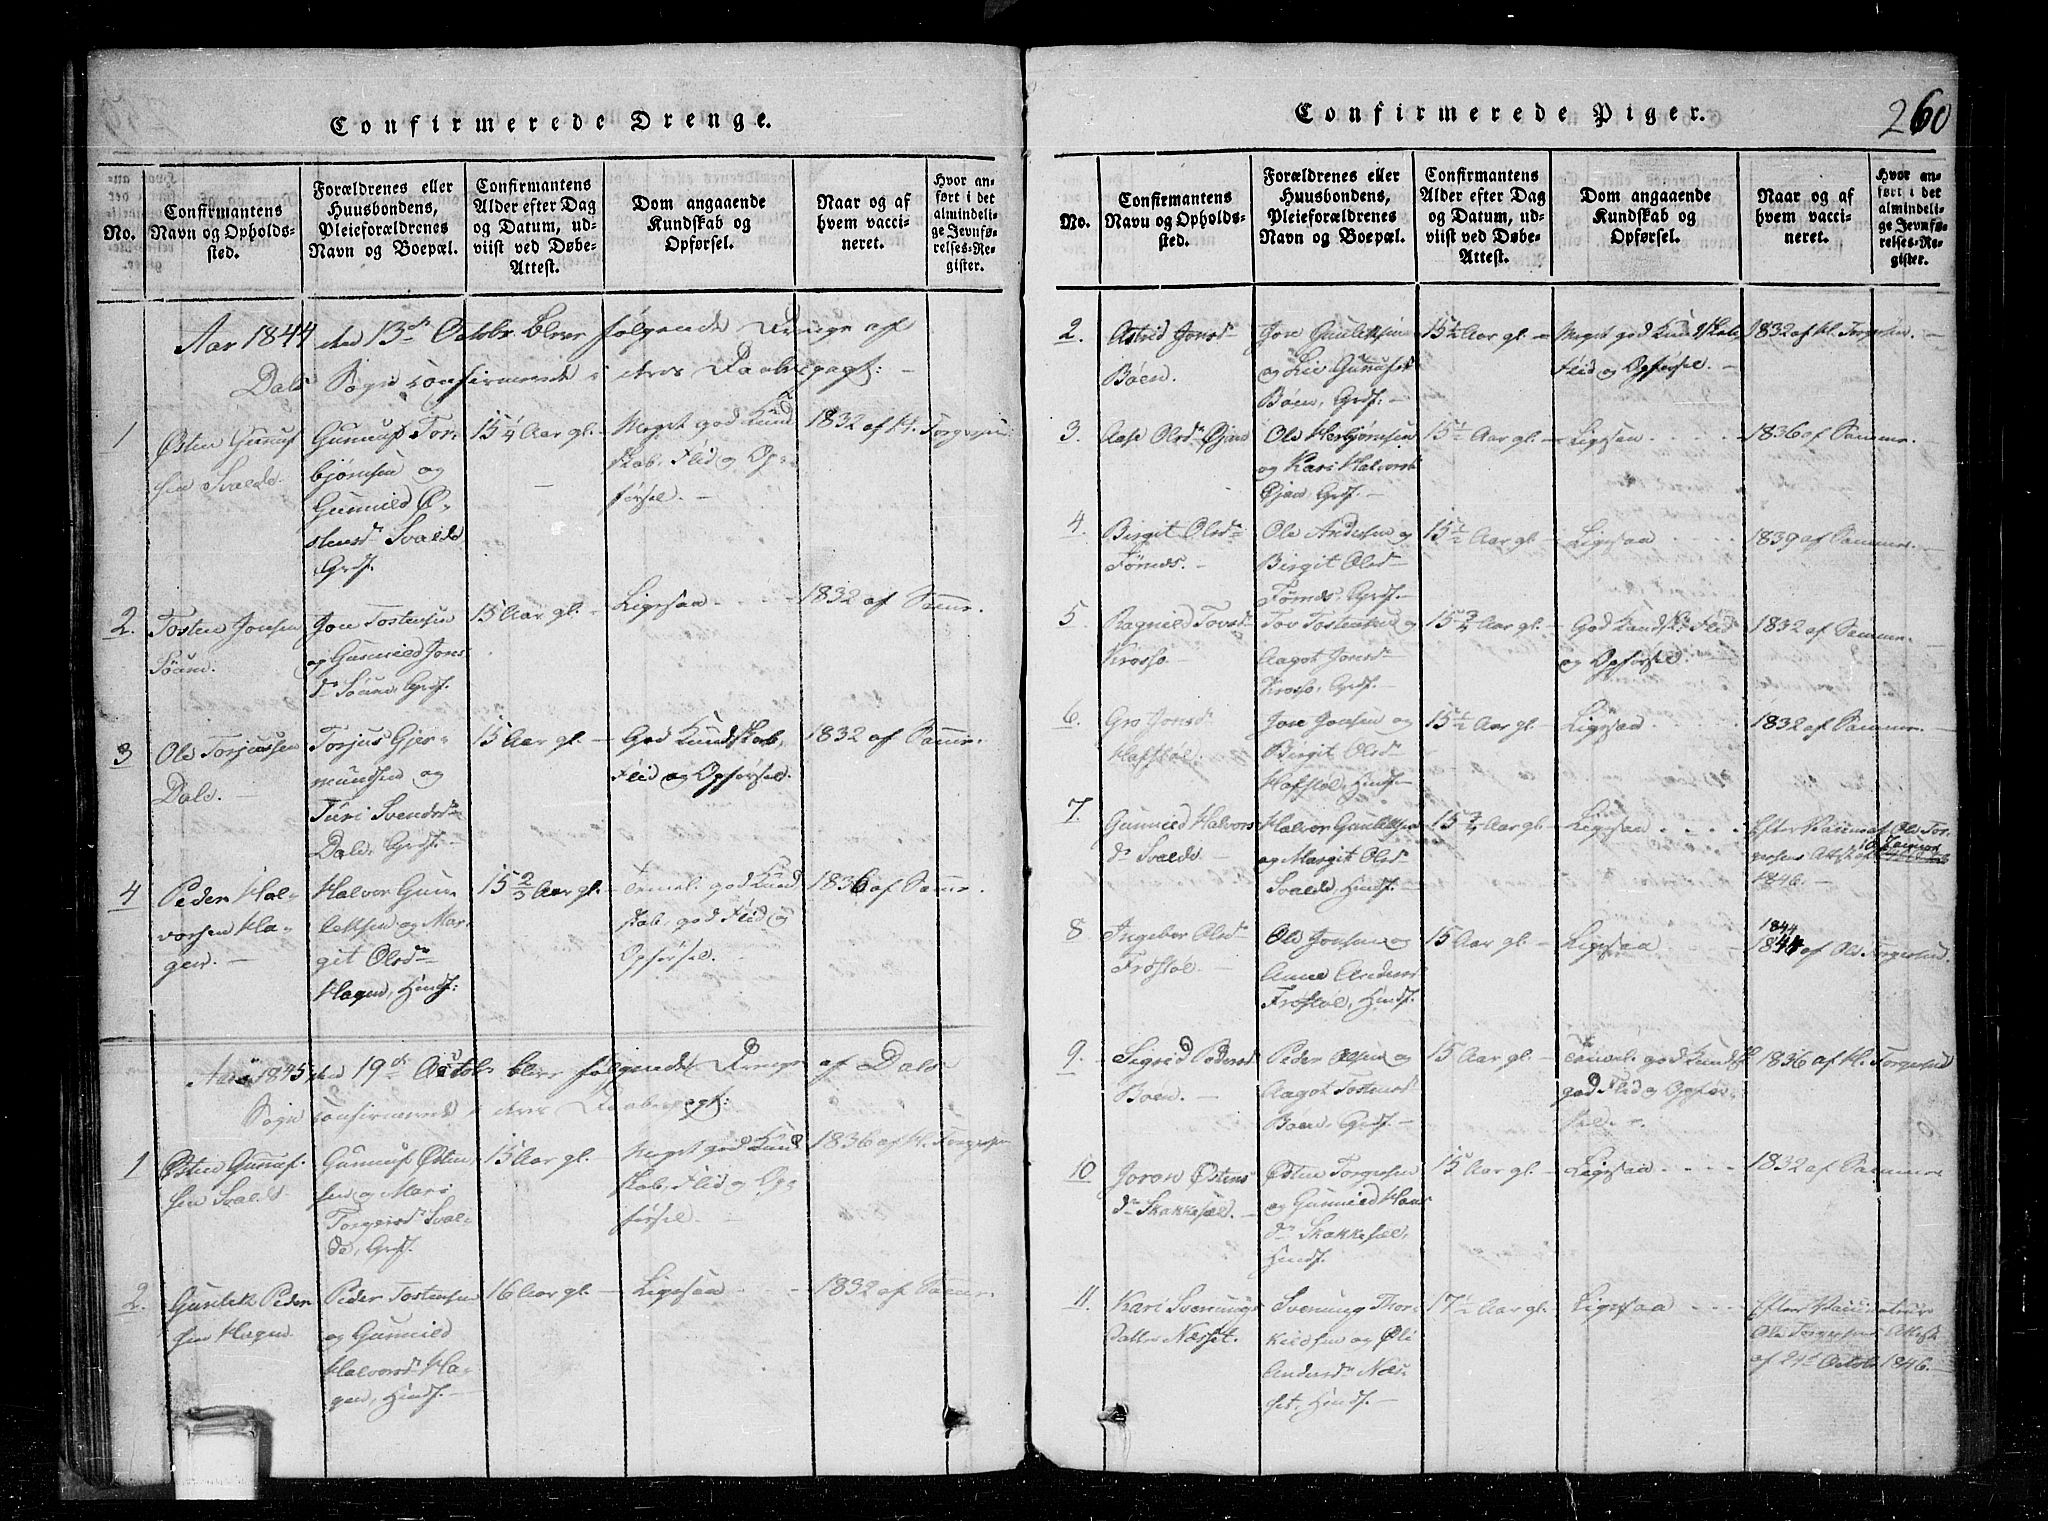 Confirmerede Drenge.
No.
Confirmantens
Navn og Opholds-
sted.
Forældrenes eller
Huusbondens,
Pleieforældrenes
Navn og Boepæl.
Confirmantens
Alder efter Dag
og Datum, ud-
viist ved Døbe-
Attest.
Dom angaaende
Kundskab og
Opførsel.
Naar og af
hvem vacci-
neret.
Hvor an-
ført i det
almindeli-
ge Jevnfø-
relses-Re-
gister.
Aar 1844 den 13de Octobr. blev følgende Drenge af
Dals Sogn confirmerede i deres Daabspagt: —
1
Østen Gunuf
sen Svalde.
Gunuf Tor-
bjørnsen og
Gunnild Ø-
stensdr Svalde
Grdf.
15 1/4 Aar gl. —
Meget god Kund
skab, Flid og Op-
førsel. —
1832 af H. Torgersen
2.
Tosten Jonsen
Søum.
Jon Tostensen
og Gunnild Jons
dr Søum, Grdf.
15 Aar gl. —
Ligesaa
1832 af Samme.
3
Ole Torjussen
Dale. —
Torjus Gjer-
mundsen og
Turi Svendsdr
Dale, Grdf. —
15 Aar gl. —
God Kundskab,
Flid og Opførsel.
1832 af Samme.
4
Peder Hal-
vorsen Ha-
gen. —
Halvor Gun-
leksen og Mar-
git Olsdr
Hagen, Huusf:
15 2/3 Aar gl. —
Temel. god Kund
skab, god Flid og
Opførsel. —
1836 af Samme.
Aar 1845, den 19de Octobr blev følgende Drenge af Dals
Sogn confirmerede i deres Daabspagt:
1
Østen Gunuf-
sen Svalde
Gunnuf Østen-
sen og Mari
Torgersdr Sval-
de, Grdf.
15 Aar gl. —
Meget god Kund
skab, Flid og Op-
førsel. —
1836 af H. Torgersen
2.
Gunlek Peder
sen Hagen.
Peder Tostensen
og Gunnild
Halvorsdr Ha-
gen, Huusf. —
16 Aar gl. —
Ligesaa
1832 af Samme.
Confirmerede Piger.
260
No.
Confirmantens
Navn og Opholds-
sted.
Forældrenes eller
Huusbondens,
Pleieforældrenes
Navn og Boepæl.
Confirmantens
Alder efter Dag
og Datum, ud-
viist ved Døbe-
Attest.
Dom angaaende
Kundskab og
Opførsel.
Naar og af
hvem vacci-
neret.
Hvor an-
ført i det
almindeli-
ge Jevnfø-
relses-Re-
gister.
2.
Astrid Jonsdr
Böen.
Jon Gunleksen
og Liv Gunufsdr
Böen, Grdf: —
15 1/2 Aar gl —
Meget god Kundskab,
Flid og Opførsel. —
1832 af H. Torgersen. —
3.
Aase Olsdr Øjan
Ole Herbjørnsen
og Kari Halvorsdr
Øjan, Grdf. —
15 1/2 Aar gl —
Ligesaa
1836 af Samme.
4
Birgit Olsdr
Førnes. —
Ole Andersen og
Birgit Olsdr
Førnes, Grdf. —
15 1/2 Aar gl —
Ligesaa
1839 af Samme.
5
Ragnild Tovsdr
Krosso —
Tov Tostensen og
Aagot Jonsdr
Krosso, Grdf. —
15 3/4 Aar gl. —
God Kundsk. Flid
og Opførsel. —
1832 af Samme.
6.
Gro Jonsdr
Hafstøl.
Jon Jonsen og
Birgit Olsdr
Hafstøl, Huusf. —
15 1/2 Aar gl. —
Ligesaa
1832 af Samme.
7.
Gunnild Halvors
dr Svalde —
Halvor Gunleksen
og Margit Olsdr
Svalde, Huusf. —
15 3/4 Aar gl. —
Ligesaa
1846. —
8
Ingebor Olsdr
Frøstøl —
Ole Jonsen og
Anne Anders
Frøstøl, Huusf.
15 Aar gl. —
Ligesaa
1844
1844 af Ole Torgersen.
9.
Sigrid Pedersdr
Böen. —
Peder Olsen og
Aagot Tostensdr
Böen, Grdf. —
15 Aar gl. —
Temel. god Kundsk
god Flid og Opfør-
sel. —
1836 af H. Torgersen
10
Joran Østens
dr Skakkesæl. —
Østen Torgersen
og Gunnild Hans
dr Skakkesæl,
Huusf.
15 Aar gl. —
Ligesaa
1832 af Samme
11.
Kari Svenungs
datter Næsset.
Svenung Thor-
kildsen og Øli
Andersdr Næs-
set, Huusf. —
17 1/2 Aar gl. —
Ligesaa
Efter Vaccinateur
Ole Torgersens Attest
af 21de Octobr 1846. —